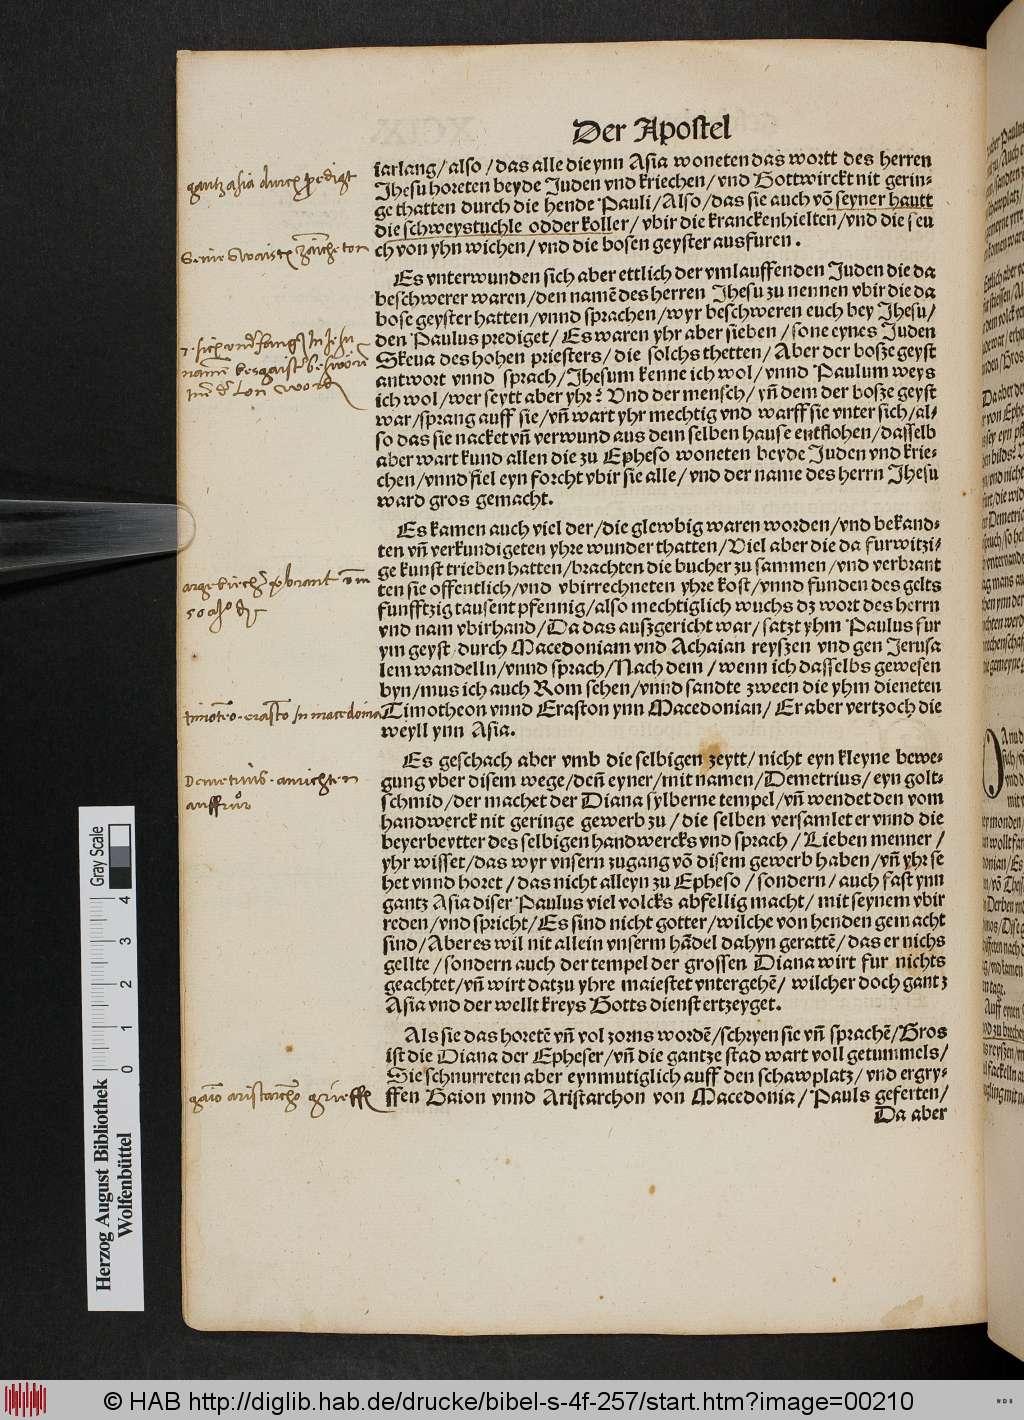 Der Apostel
iarlang/also/das alle die ynn Asia woneten das wortt des herren
Jhesu horeten beyde Juden vnd kriechen/vnd Gott wirckt nit gerin-
ge thatten durch die hende Pauli/Also/das sie auch võ seyner hautt
die schweystuchle odder koller/vbir die krancken hielten/vnd die seu
ch von yhn wichen/vnd die bosen geyster ausfuren.
Es vnterwunden sich aber ettlich der vmlauffenden Juden die da
beschwerer waren/den namẽ des herren Jhesu zu nennen vbir die da
bose geyster hatten/vnnd sprachen/wyr beschweren euch bey Jhesu/
den Paulus prediget/Es waren yhr aber sieben/sone eynes Juden
Skeua des hohen priesters/die solchs thetten/Aber der bosze geyst
antwort vnnd sprach/Jhesum kenne ich wol/vnnd Paulum weys
ich wol/wer seytt aber yhr? Vnd der mensch/yñ dem der bosze geyst
war/sprang auff sie/vñ wart yhr mechtig vnd warff sie vnter sich/al-
so das sie nacket vñ verwund aus dem selben hause entflohen/dasselb
aber wart kund allen die zu Epheso woneten beyde Juden vnd krie-
chen/vnnd fiel eyn forcht vbir sie alle/vnd der name des herrn Jhesu
ward gros gemacht.
Es kamen auch viel der/die glewbig waren worden/vnd bekand-
ten vñ verkundigeten yhre wunder thatten/Viel aber die da furwitzi-
ge kunst trieben hatten/brachten die bucher zu sammen/vnd verbrant
ten sie offentlich/vnd vbirrechneten yhre kost/vnnd funden des gelts
funfftzig tausent pfennig/also mechtiglich wuchs dz wort des herrn
vnd nam vbirhand/Da das auszgericht war/satzt yhm Paulus fur
ym geyst/durch Macedoniam vnd Achaian reyszen vnd gen Jerusa
lem wandelln/vnnd sprach/Nach dem/wenn ich dasselbs gewesen
byn/mus ich auch Rom sehen/vnnd sandte zween die yhm dieneten
Timotheon vnnd Eraston ynn Macedonian/Er aber vertzoch die
weyll ynn Asia.
Es geschach aber vmb die selbigen zeytt/nicht eyn kleyne bewe-
gung vber disem wege/deñ eyner/mit namen/Demetrius/eyn golt-
schmid/der machet der Diana sylberne tempel/vñ wendet den vom
handwerck nit geringe gewerb zu/die selben versamlet er vnnd die
beyerbeytter des selbigen handwercks vnd sprach/Lieben menner/
yhr wisset/das wyr vnsern zugang võ disem gewerb haben/vñ yhr se
het vnnd horet/das nicht alleyn zu Epheso/sondern/auch fast ynn
gantz Asia diser Paulus viel volcks abfellig macht/mit seynem vbir
reden/vnd spricht/Es sind nicht gotter/wilche von henden gemacht
sind/Aber es wil nit allein vnserm hãdel dahyn gerattẽ/das er nichs
gellte/sondern auch der tempel der grossen Diana wirt fur nichts
geachtet/vñ wirt datzu yhre maiestet vntergehẽ/wilcher doch gantz
Asia vnd der wellt kreys Gotts dienst ertzeyget.
Als sie das horetẽ vñ vol zorns wordẽ/schryen sie vñ sprachẽ/Gros
ist die Diana der Epheser/vñ die gantze stad wart voll getummels/
Sie schnurreten aber eynmutiglich auff den schawplatz/vnd ergry-
ffen Gaion vnnd Aristarchon von Macedonia/Pauls geferten/
Da aber
gantz asia durch predigt
timotheo. erasto in macedonia
Demetrius. anrichter
auffrur
Gray Scale
0 1 2 3 4
Herzog August Bibliothek
Wolfenbüttel
© HAB http://diglib.hab.de/drucke/bibel-s-4f-257/start.htm?image=00210